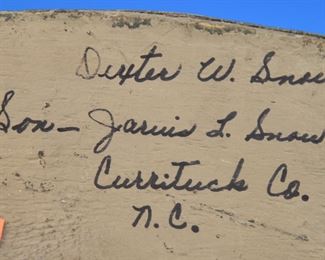 Dexter W. Snow
Son - Jarvis L. Snow
Currituck Co.
N.C.